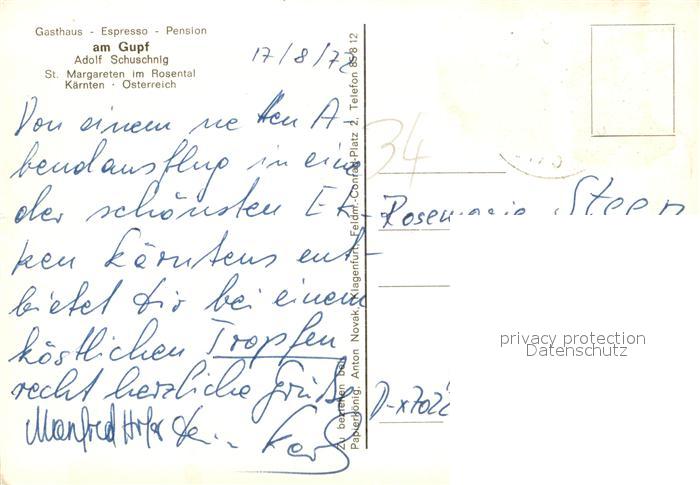 Gasthaus - Espresso - Pension
am Gupf
Adolf Schuschnig
St. Margareten im Rosental
Kärnten · Österreich
17/8/72
Von einem netten A-
bendausflug in eine
der schönsten Ek-
ken Kärntens ent-
bietet Dir bei einem
köstlichen Tropfen
recht herzliche Grüße
Manfred
Zu beziehen bei
Papierkönig, Anton Novak, Klagenfurt, Feldm.-Conrad-Platz 2, Telefon 85 8 12
34
privacy protection
Datenschutz
D-x7022